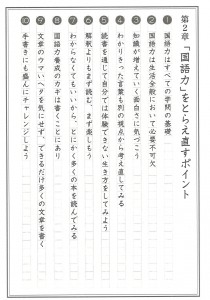 第2章「国語力」をとらえ直すポイント
❶ 国語力はすべての学問の基礎
❷ 国語力は生活全般において必要不可欠
❸ 知識が増えていく面白さに気づこう
❹ わかりきった言葉も別の視点から考え直してみる
❺ 読書を通じて自分では体験できない生き方をしてみよう
❻ 解釈よりもまず読む、まず楽しもう
❼ わからなくてもいいから、とにかく多くの本を読んでみる
❽ 国語力養成のカギは書くことにあり
❾ 文章のウマいヘタを気にせず、できるだけ多くの文章を書く
❿ 手書きにも盛んにチャレンジしよう